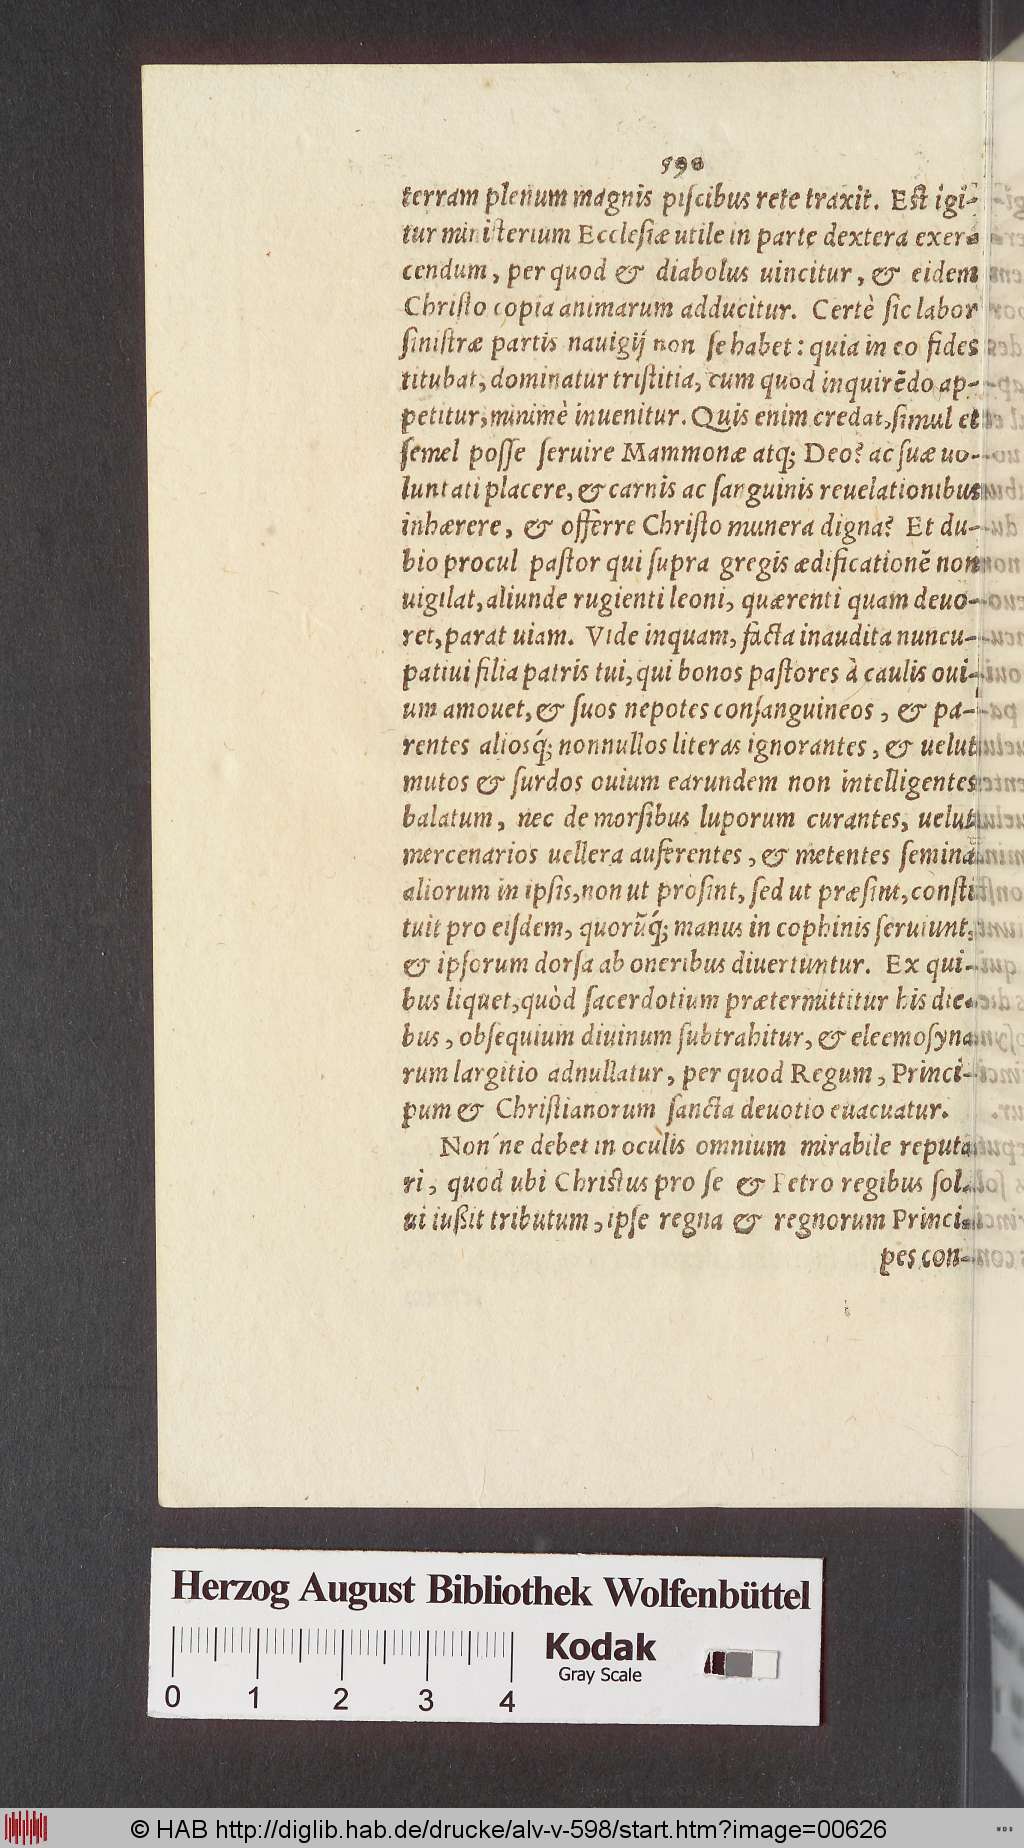 598
terram plenum magnis piſcibus rete traxit. Eſt igi-
tur miniſterium Eccleſiæ utile in parte dextera exer-
cendum, per quod & diabolus uincitur, & eidem
Chriſto copia animarum adducitur. Certè ſic labor
ſiniſtræ partis nauigij non ſe habet: quia in eo fides
titubat, dominatur triſtitia, cum quod inquirẽdo ap-
petitur, minimè inuenitur. Quis enim credat, ſimul et
ſemel poſſe ſeruire Mammonæ atq; Deo? ac ſuæ uo-
luntati placere, & carnis ac ſanguinis reuelationibus
inhærere, & offerre Chriſto munera digna? Et du-
bio procul paſtor qui ſupra gregis ædificationẽ non
uigilat, aliunde rugienti leoni, quærenti quam deuo-
ret, parat uiam. Vide inquam, facta inaudita nuncu-
patiui filia patris tui, qui bonos paſtores à caulis oui-
um amouet, & ſuos nepotes conſanguineos, & pa-
rentes alioſq́; nonnullos literas ignorantes, & uelut
mutos & ſurdos ouium earundem non intelligentes
balatum, nec de morſibus luporum curantes, uelut
mercenarios uellera auferentes, & metentes ſemina
aliorum in ipſis, non ut proſint, ſed ut præſint, conſti
tuit pro eiſdem, quorũq́; manus in cophinis ſeruiunt,
& ipſorum dorſa ab oneribus diuertuntur. Ex qui-
bus liquet, quòd ſacerdotium prætermittitur his die-
bus, obſequium diuinum ſubtrahitur, & eleemoſyna
rum largitio adnullatur, per quod Regum, Princi-
pum & Chriſtianorum ſancta deuotio euacuatur.
Non´ne debet in oculis omnium mirabile reputa
ri, quod ubi Chriſtus pro ſe & Petro regibus ſol-
ui iußit tributum, ipſe regna & regnorum Princi-
pes con-
Herzog August Bibliothek Wolfenbüttel
Kodak
Gray Scale
0 1 2 3 4
© HAB http://diglib.hab.de/drucke/alv-v-598/start.htm?image=00626